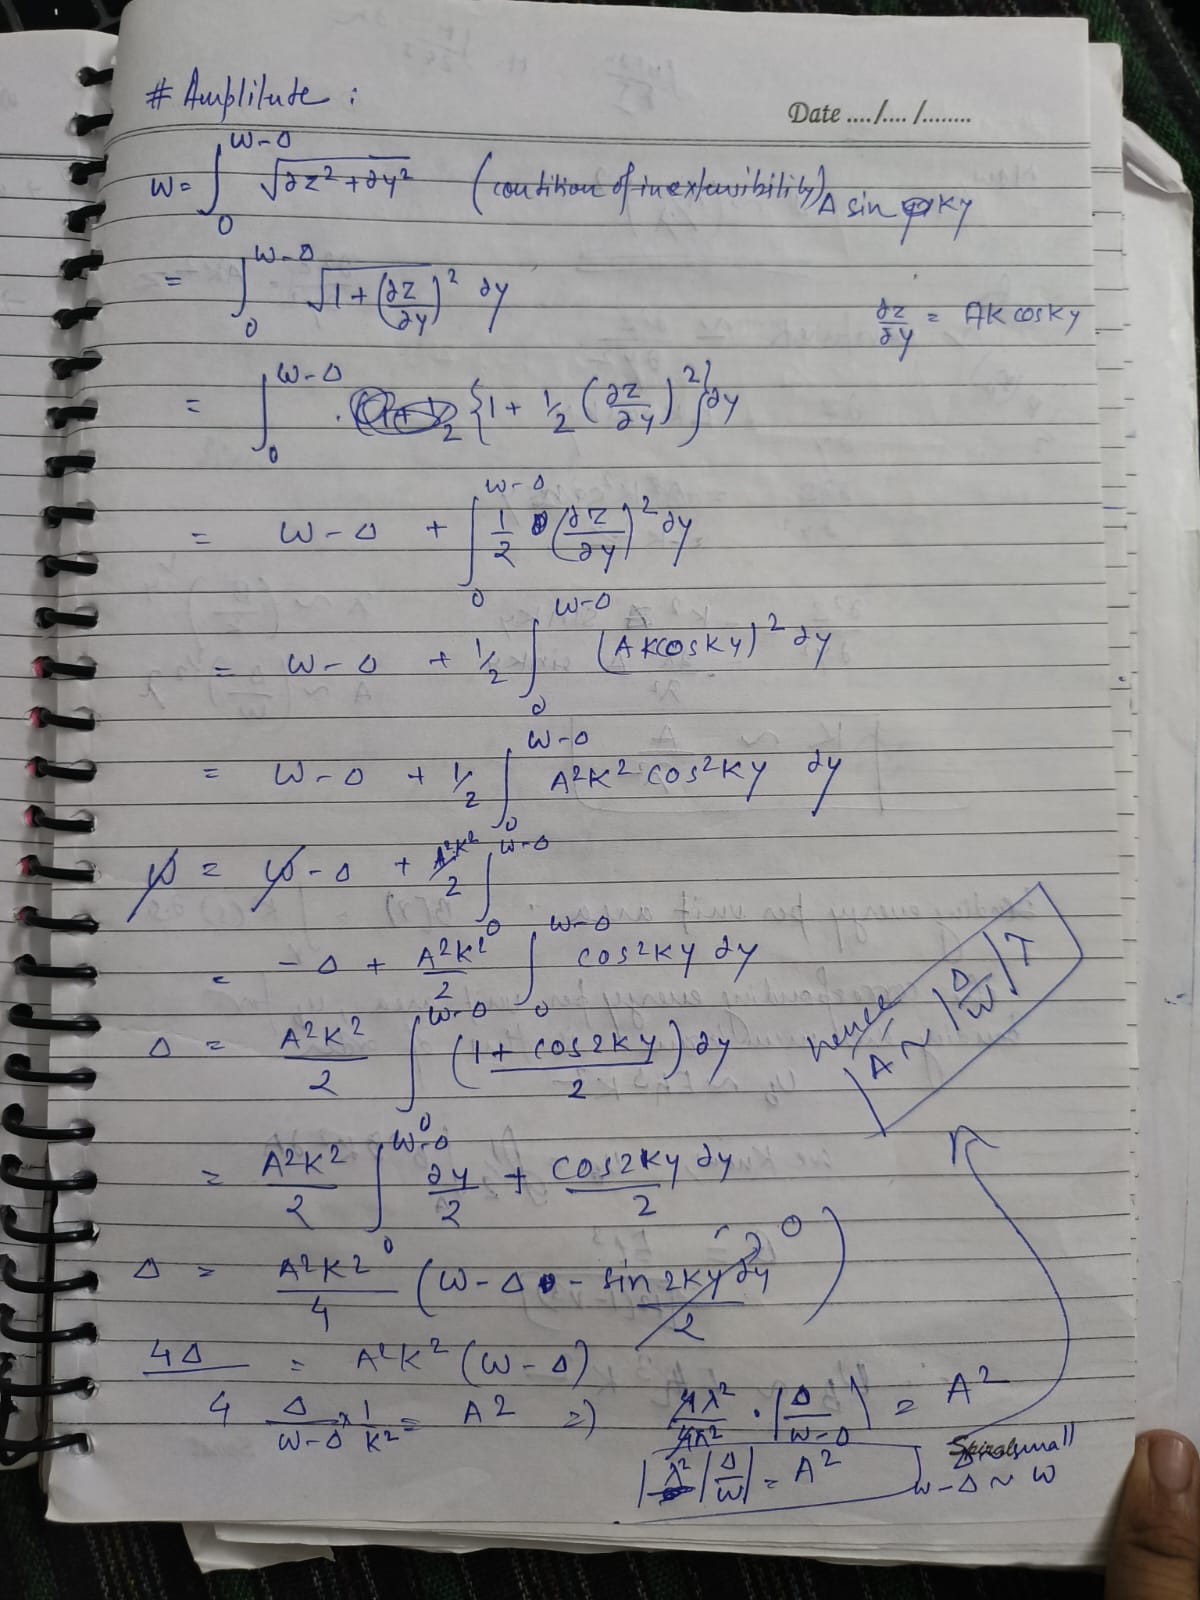 # Amplitute :
Date ..../..../........
W = ∫₀^{W-Δ} √(∂z² + ∂y²) (condition of inextensibility) A sin Ky
= ∫₀^{W-Δ} √(1 + (∂z/∂y)²) ∂y
∂z/∂y = AK cos Ky
= ∫₀^{W-Δ} {1 + 1/2 (∂z/∂y)²} ∂y
= W-Δ + ∫₀^{W-Δ} 1/2 (∂z/∂y)² ∂y
= W-Δ + 1/2 ∫₀^{W-Δ} (AKcosKy)² ∂y
= W-Δ + 1/2 ∫₀^{W-Δ} A²K² cos²Ky ∂y
W = W-Δ + A²K²/2 ∫₀^{W-Δ}
= -Δ + A²K²/2 ∫₀^{W-Δ} cos²Ky ∂y
Δ = A²K²/2 ∫₀^{W-Δ} (1+cos2Ky)/2 ∂y
hence
A ~ |Δ/W| T
= A²K²/2 ∫₀^{W-Δ} ∂y/2 + cos2Ky ∂y/2
Δ = A²K²/4 (W-Δ - sin2Ky ∂y/2 → 0)
4Δ = A²K² (W-Δ)
4 Δ/(W-Δ) × 1/K² = A² ⇒ 4λ²/4π² · |Δ/(W-Δ)| = A²
| λ² | Δ/W | = A²
Δ small
W-Δ ~ W